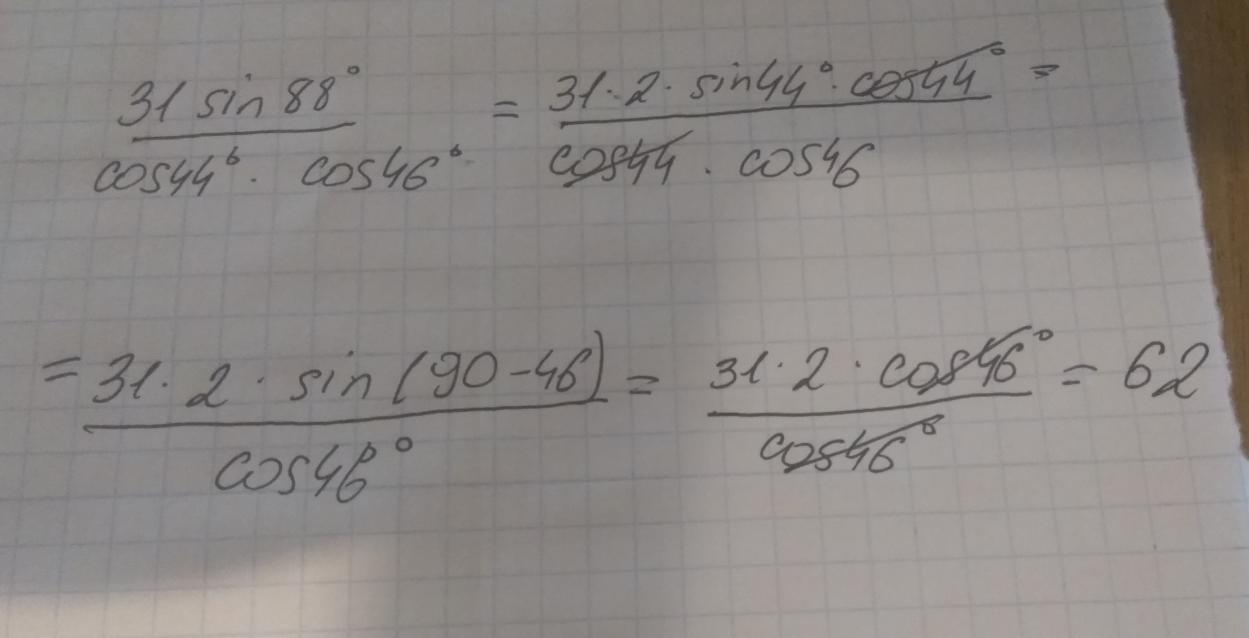 31 sin 88° / cos44° · cos46° = 31 · 2 · sin44° · cos44° / cos44 · cos46 =
= 31 · 2 · sin (90 - 46) / cos46° = 31 · 2 · cos46° / cos46° = 62